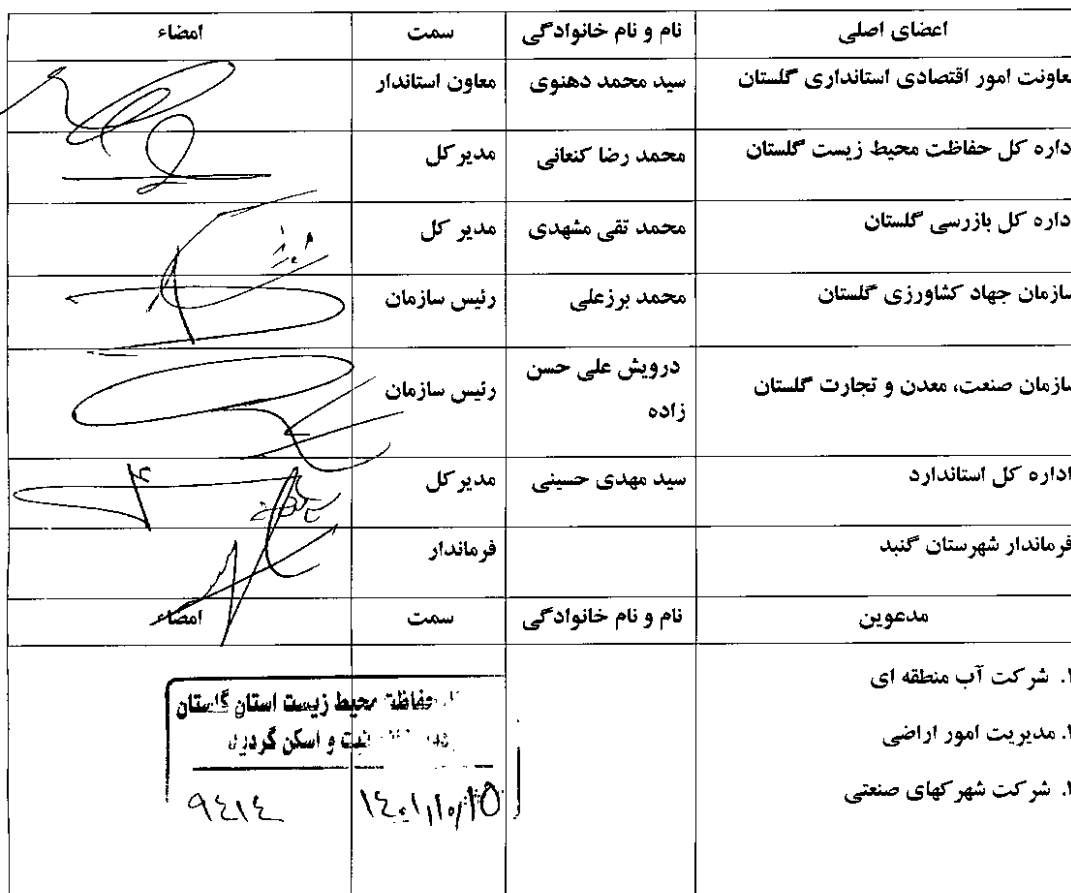 اعضای اصلی نام و نام خانوادگی سمت امضاء
معاونت امور اقتصادی استانداری گلستان سید محمد دهنوی معاون استاندار
داره کل حفاظت محیط زیست گلستان محمد رضا کنعانی مدیر کل
داره کل بازرسی گلستان محمد تقی مشهدی مدیر کل
سازمان جهاد کشاورزی گلستان محمد برزعلی رئیس سازمان
سازمان صنعت، معدن و تجارت گلستان درویش علی حسن رئیس سازمان
زاده
اداره کل استاندارد سید مهدی حسینی مدیر کل
فرماندار شهرستان گنبد فرماندار
مدعوین نام و نام خانوادگی سمت امضاء
شرکت آب منطقه ای
مدیریت امور اراضی
شرکت شهرکهای صنعتی
حفاظت محیط زیست استان گلستان
ثبت و اسکن گردید
۱۴۰۱/۱۰/۱۵
۹۴۱۴